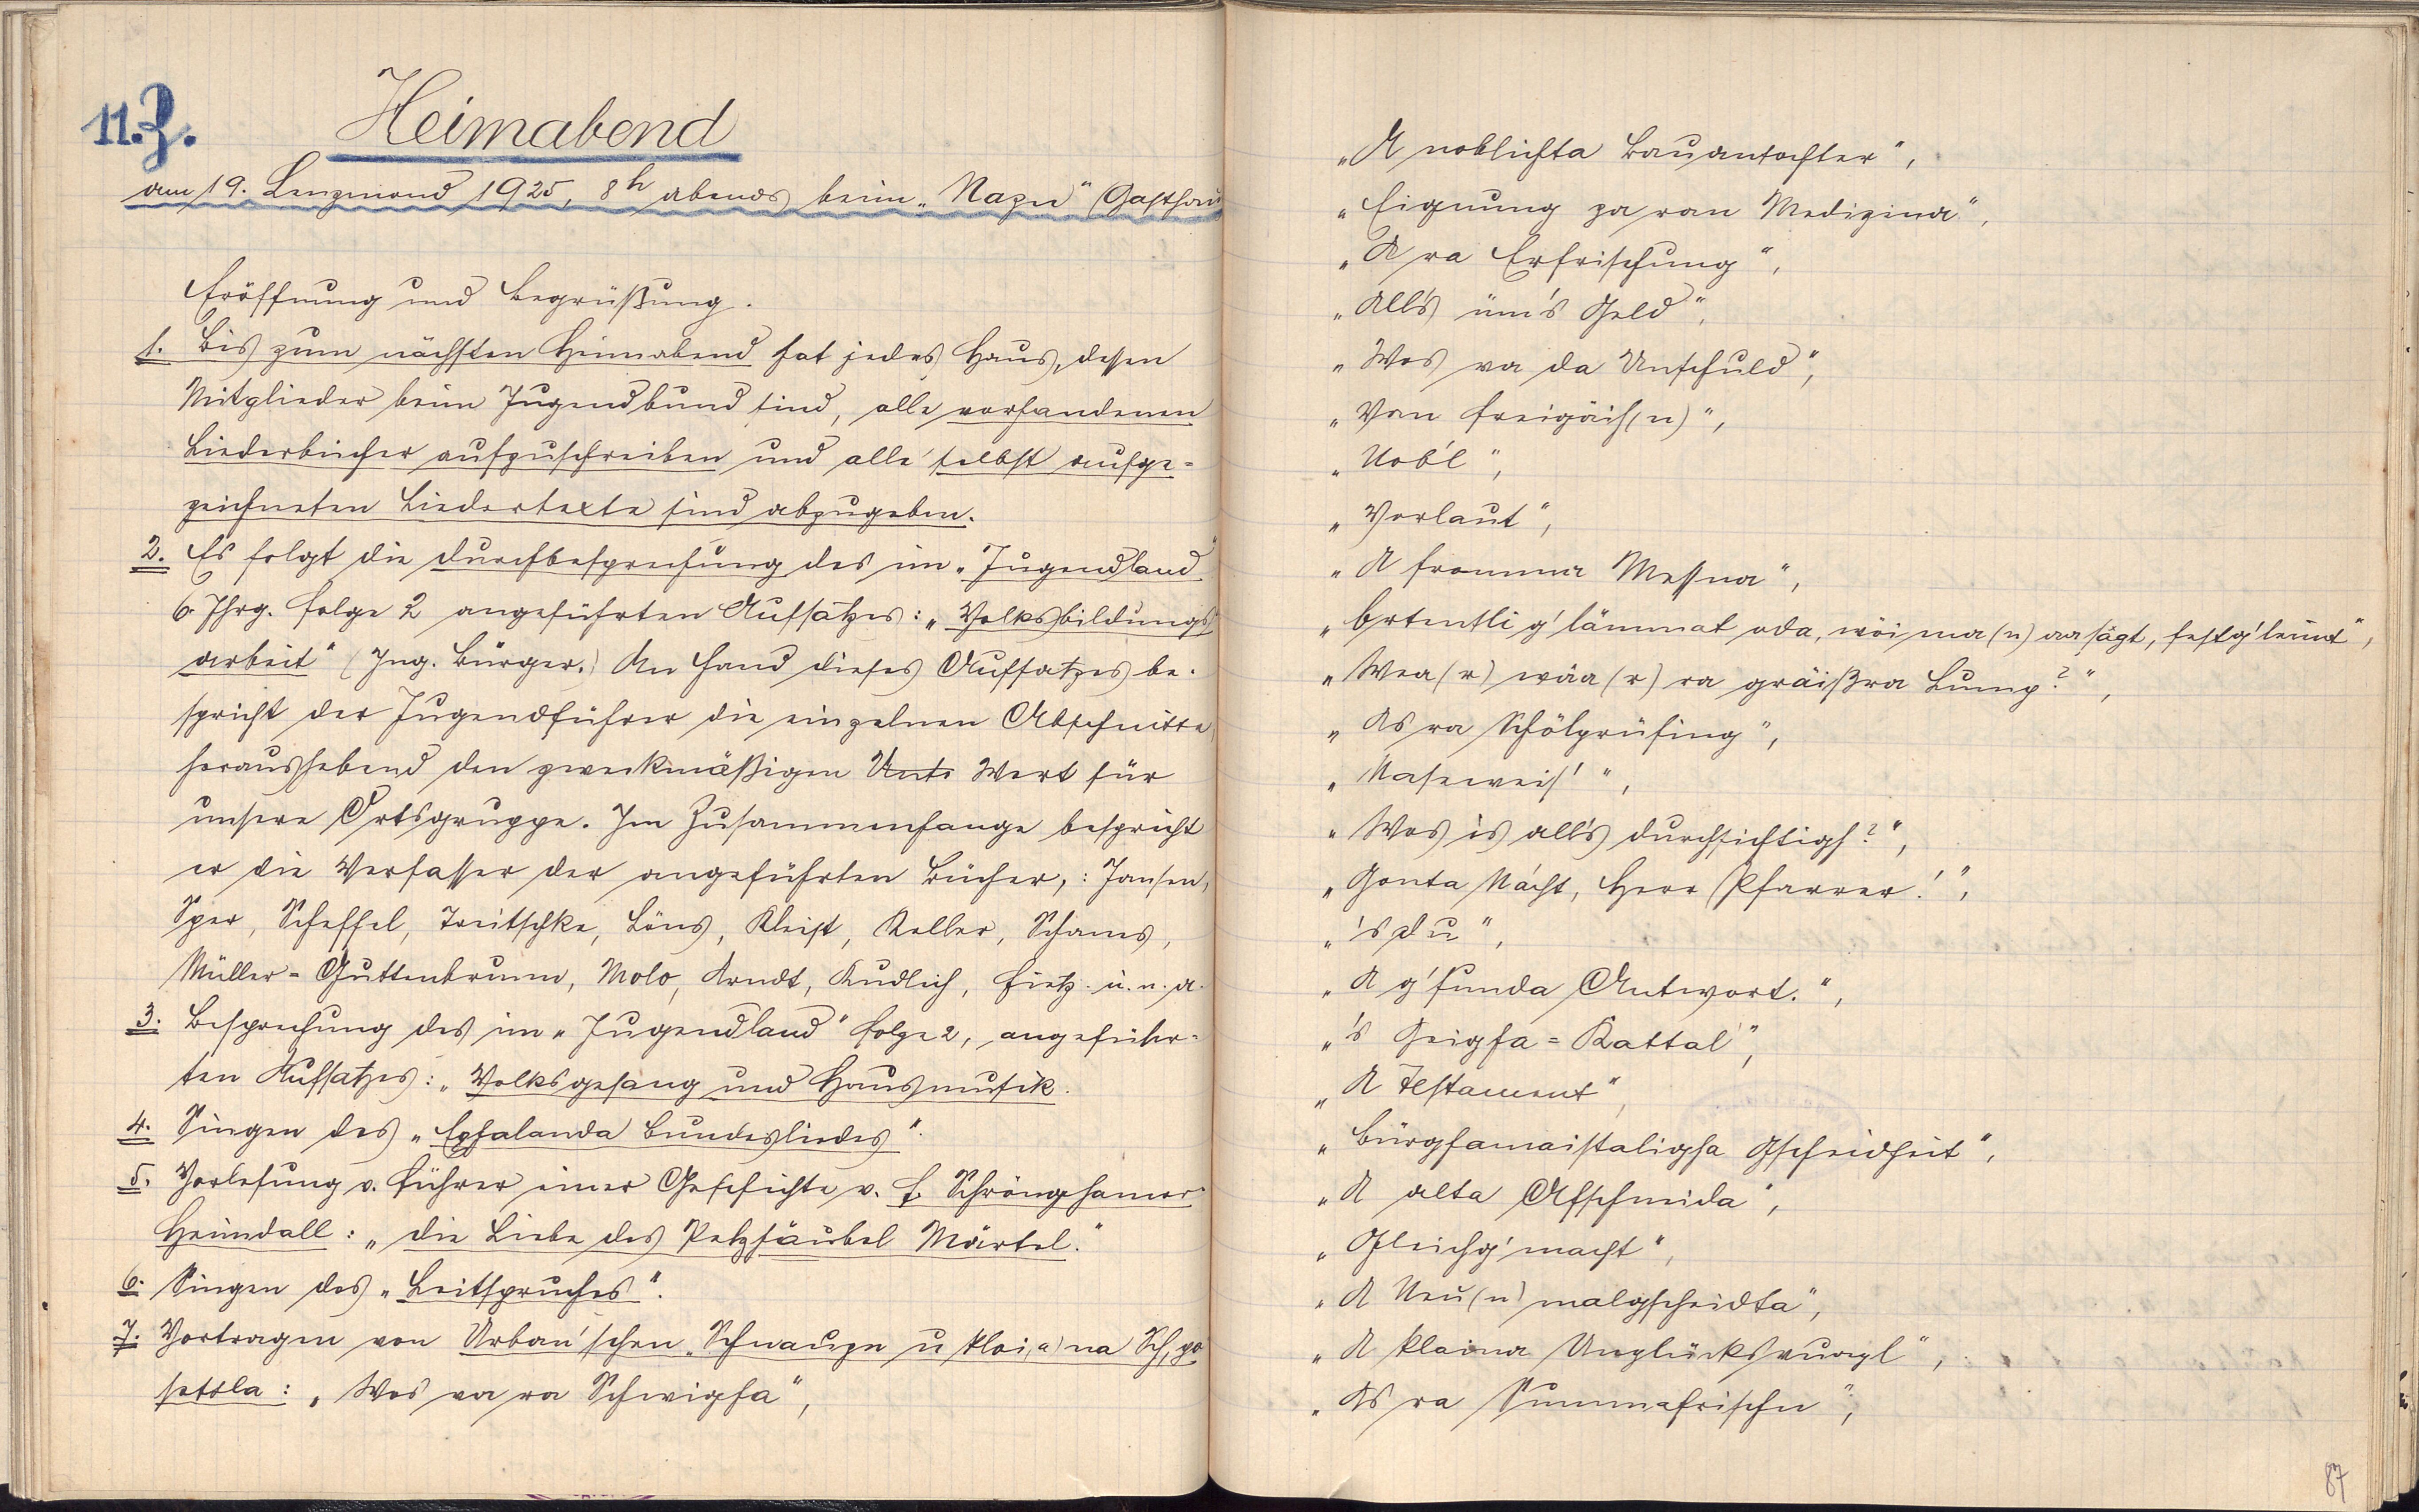 11. H.
Heimabend
am 19. Lenzmond 1925, 8h abends beim „Nazn" (Gasthau
Eröffnung und Begrüßung.
1. Bis zum nächsten Heimabend hat jedes Haus, dessen
Mitglieder beim Jugendbund sind, alle vorhandenen
Liederbücher aufzuschreiben und alle selbst aufge-
zeichneten Liedertexte sind abzugeben.
2. Es folgt die Durchbesprechung des im „Jugendland"
6. Jhrg. Folge 2 angeführten Aufsatzes: „Volksbildungs
arbeit" (Ing. Bürger.) An Hand dieses Aufsatzes be-
spricht der Jugendführer die einzelnen Abschnitte,
heraushebend den zweckmäßigen Wert für
unsere Ortsgruppe. Im Zusammenhange bespricht
er die Verfasser der angeführten Bücher,: Jansen,
Sper, Scheffel, Treitschke, Löns, Kleist, Keller, Schams,
Müller-Guttenbrunn, Molo, Arndt, Kudlich, Fietz u.v.a.
3. Besprechung des im „Jugendland" Folge 2, angeführ-
ten Aufsatzes: „Volksgesang und Hausmusik.
4. Singen des „Eghalanda Bundesliedes".
5. Vorlesung v. Führer einer Geschichte v. F. Schrönghamer
Heimdall: „Die Liebe des Petzhäubel Märtel."
6. Singen des „Leitspruches".
7. Vortragen von Urban'schen „Schnauzn u kloi(a)na
„Wos va ra Schwigha",
„A noblichta Bauantochter",
„Eignung za ran Medizina",
„A ra Erfrischung",
„Alls üm's Geld",
„Wos va da Unschuld",
„Van Freigäih(n)",
„Nob'l",
„Vorlaut",
„A fromma Messna",
„Ortentli g'lämmat oda, wöi ma(n) aa sagt, festg'leimt",
„Wea(r) wäa(r) ra gräißra Lump?",
„As ra Schölprüfing",
„Naseweis'",
„Wos is alls durchsichtigh?",
„Gouta Nácht, Herr Pfarrer!",
„'s Du",
„A g'sunda Antwort.",
„'s Geigha-Kattal",
„A Testament",
„Bürghamaistaligha Gscheidheit",
„A alta Afschneida",
„Gleichg'macht",
„A Neu(n)malgscheidta",
„A klaina Unglücksvuagl",
„As ra Summafrischn",
87